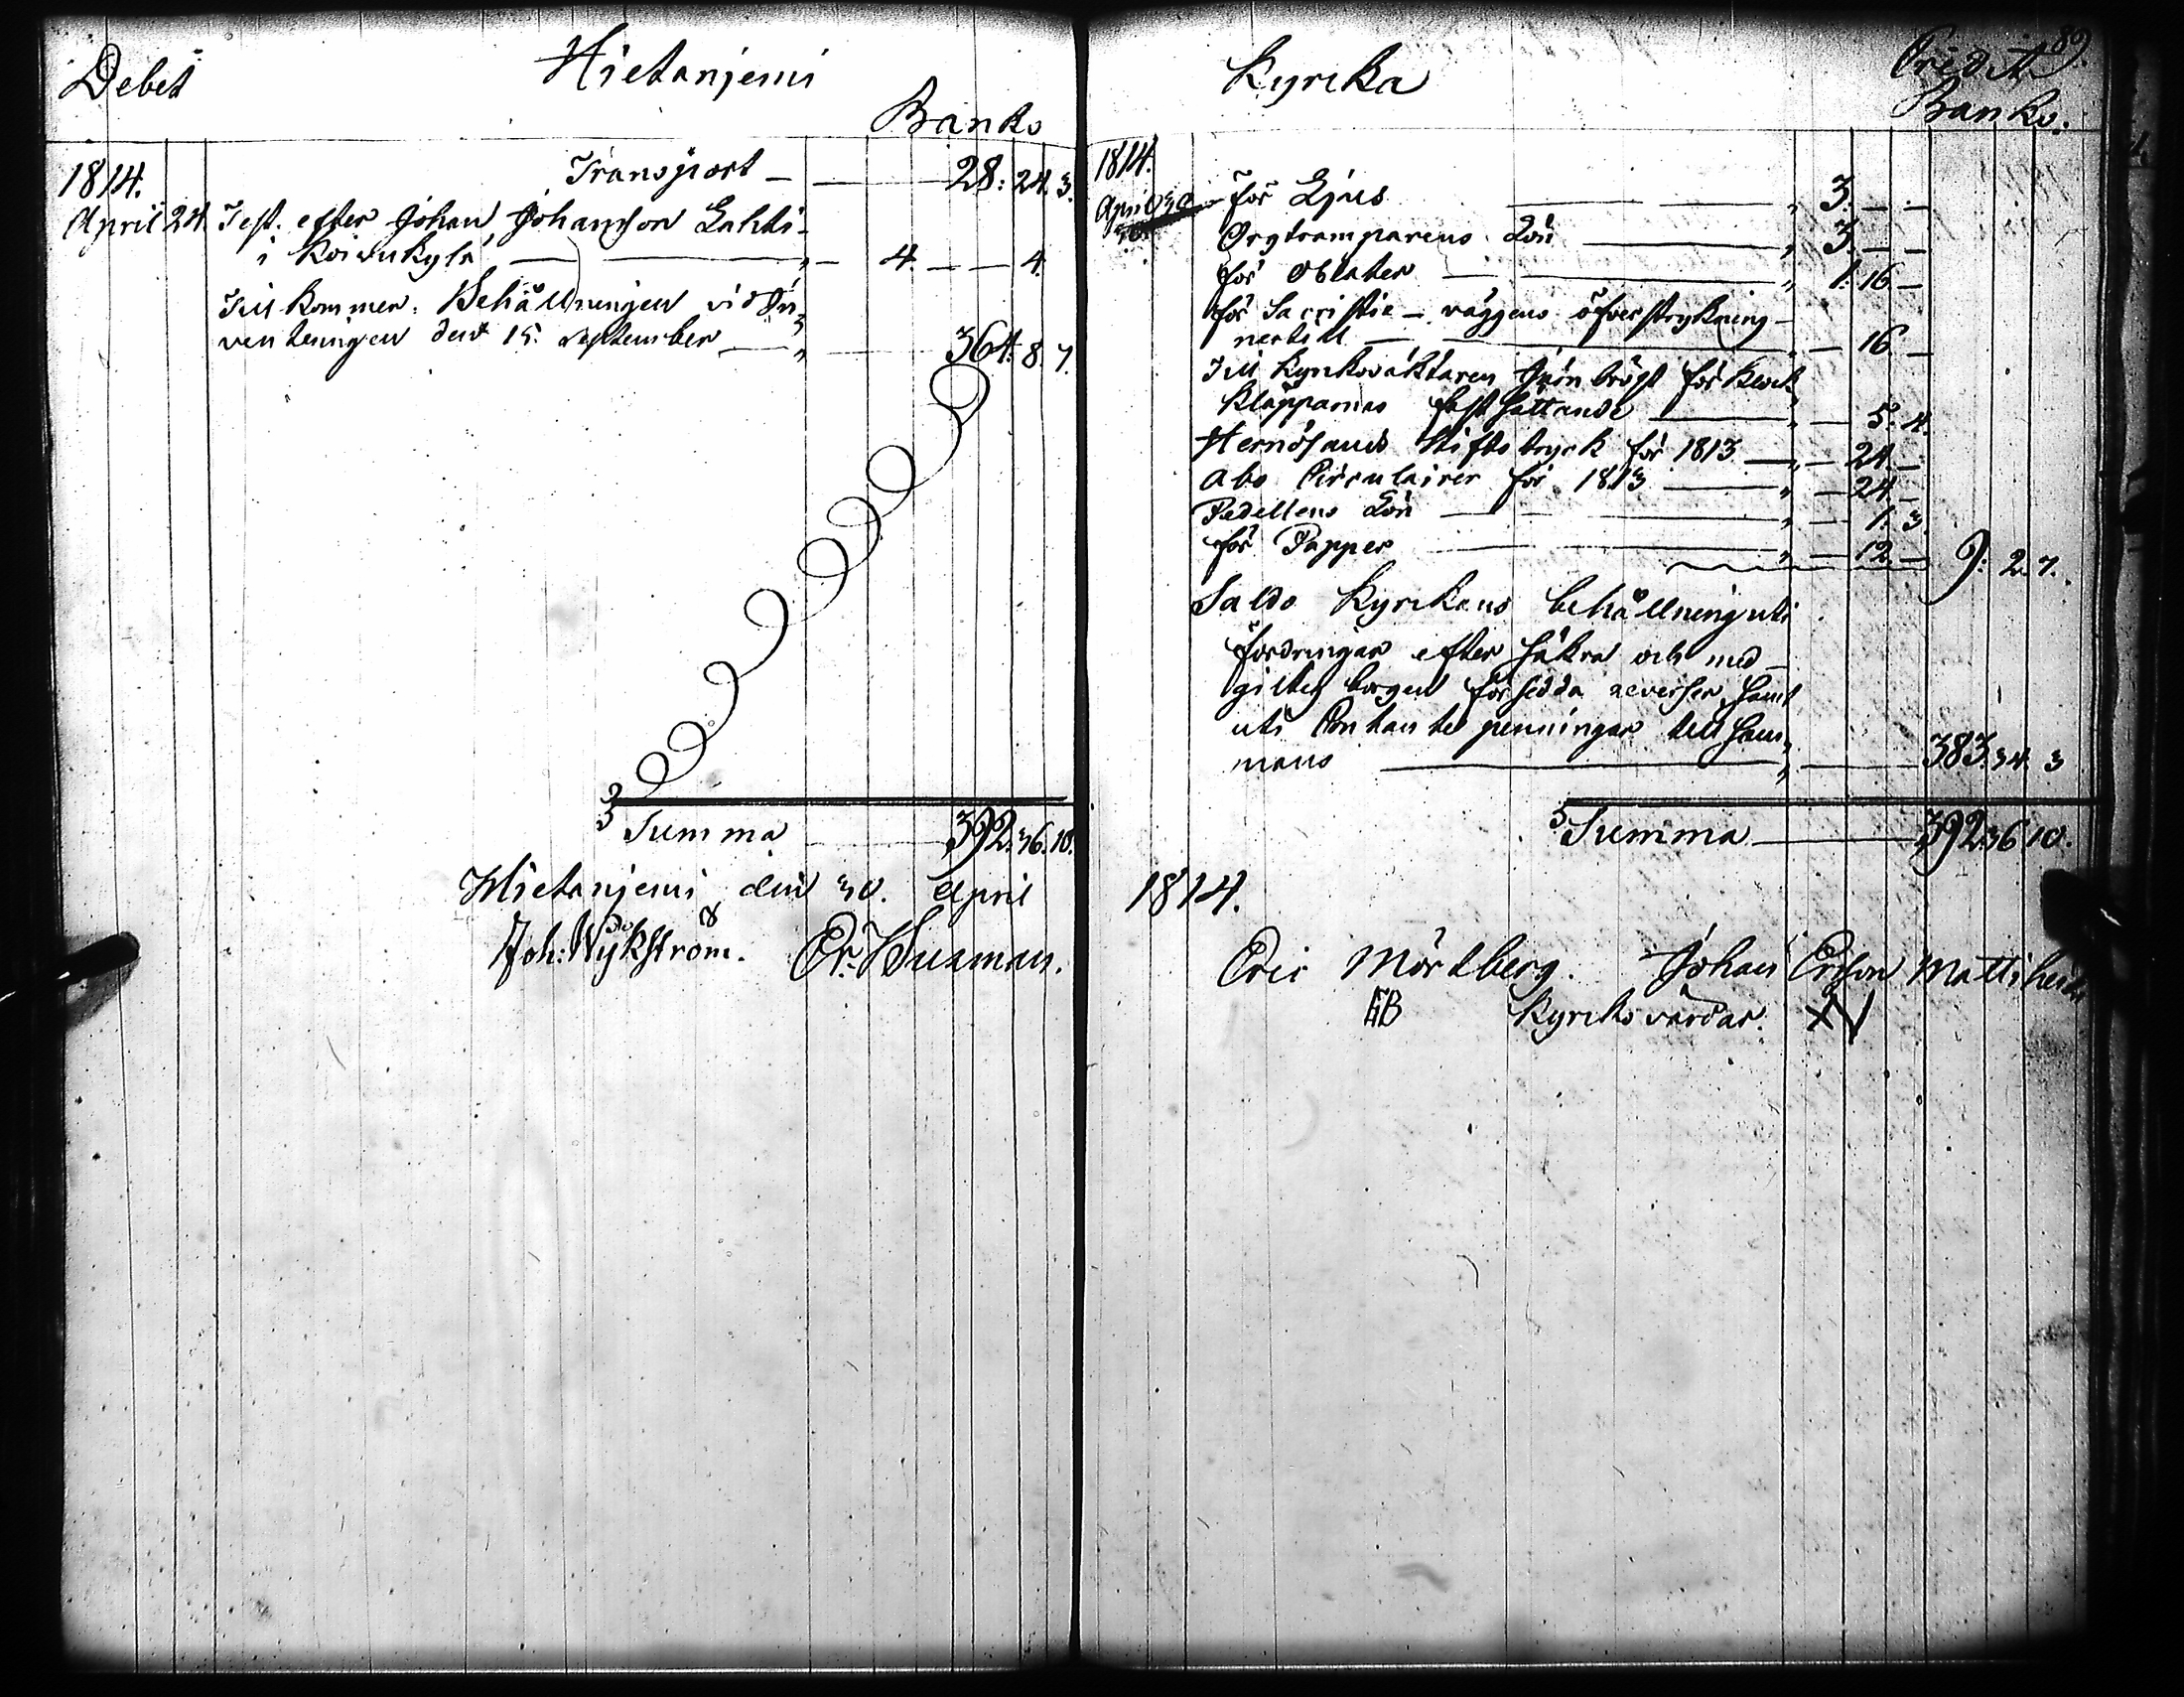 Debet Hietaniemi
Banko
1814. Transport - 28: 24. 3.
April 24 Test. efter Johan Johansson Lahti-
i Koivukylä " - 4. - - 4.
Till kommer. Behållningen vid In-
venteringen den 15. September " 364. 8. 7.
Summa 392. 36. 10.
Hietaniemi den 30. April
Joh: Wykström. Er. Husman.
89.
Kyrcka Credit
Banko.
1814.
April 30 för Ljus " 3. - -
Orgtramparens Lön " 3. - -
för Oblater " 1. 16 -
för Sacristie-väggens öfverstrykning
nertill " - 16 -
Till Kyrkovaktaren för Klock
Kläpparnas fastsättande " - 5. 4.
Hernösands Stiftstryck för 1813 " - 24 -
Åbo Circulairer för 1813 " - 24 -
Pedellens Lön " - 1. 3.
för Papper " - 12 - 9: 2. 7.
Saldo Kyrckans behållning uti
fordringar efter säkra och med
giltig borgen försedda reverser, samt
uti Contante penningar till sam-
mans " 383. 34. 3
Summa 392. 36 10.
1814.
Eric Mörtberg. Johan Ersson Mattiheikki
EB Kyrckovärdar.